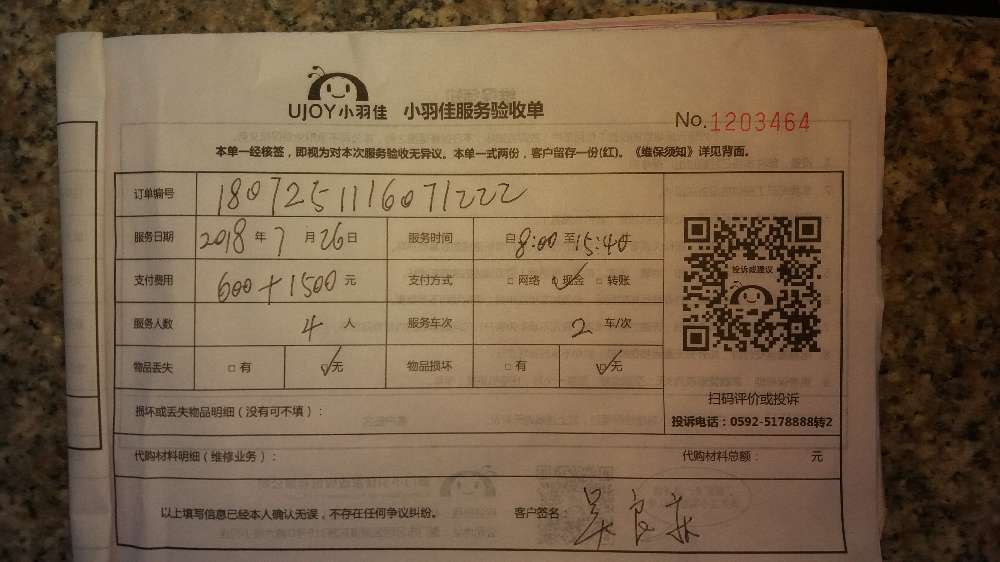 UJOY小羽佳 小羽佳服务验收单
No.1203464
本单一经核签，即视为对本次服务验收无异议。本单一式两份，客户留存一份(红)。《维保须知》详见背面。
订单编号 1807251116071222
服务日期 2018年7月26日 服务时间 自8:00至15:40
支付费用 600+1500元 支付方式 □网络 ☑现金 □转账
服务人数 4人 服务车次 2车/次
物品丢失 □有 ☑无 物品损坏 □有 ☑无
投诉或建议
扫码评价或投诉
投诉电话：0592-5178888转2
损坏或丢失物品明细（没有可不填）：
代购材料明细（维修业务）： 代购材料总额： 元
以上填写信息已经本人确认无误，不存在任何争议纠纷。 客户签名：吴良